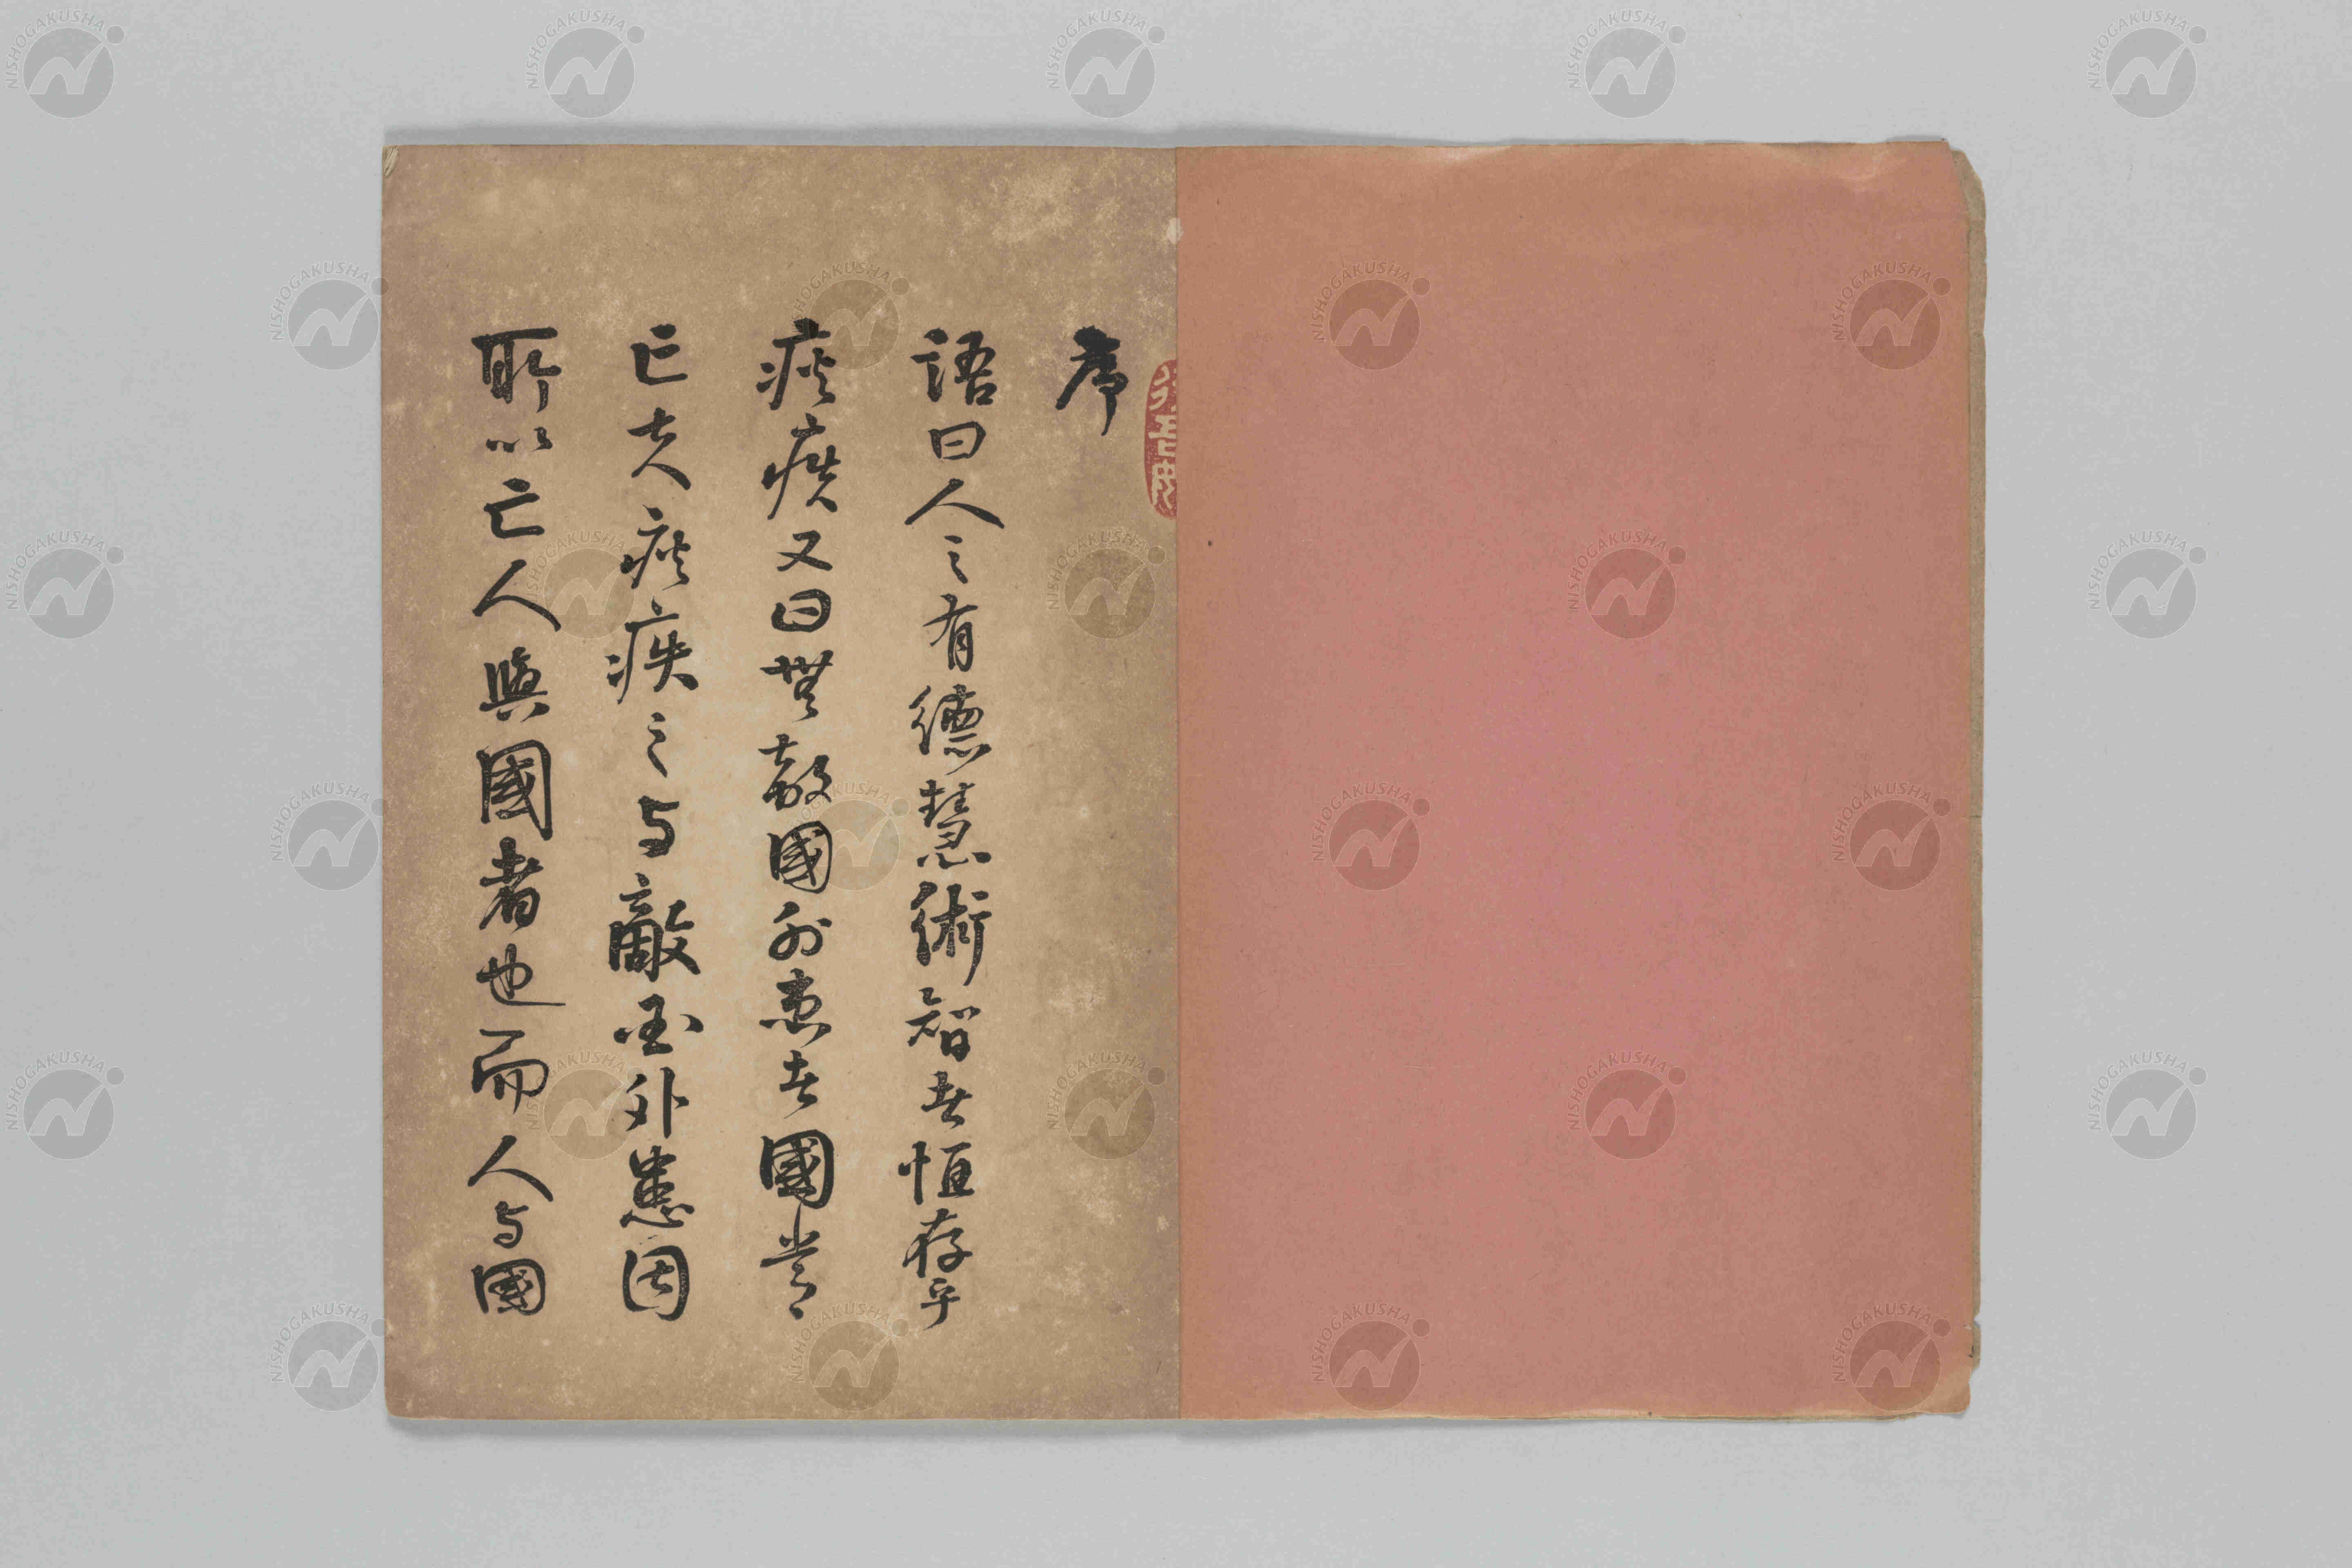 序
語曰人之有德慧術智者恒存乎
疢疾又曰無敵國外患者國常
亡夫疢疾之与敵国外患固
所以亡人與國者也而人与國
NISHOGAKUSHA